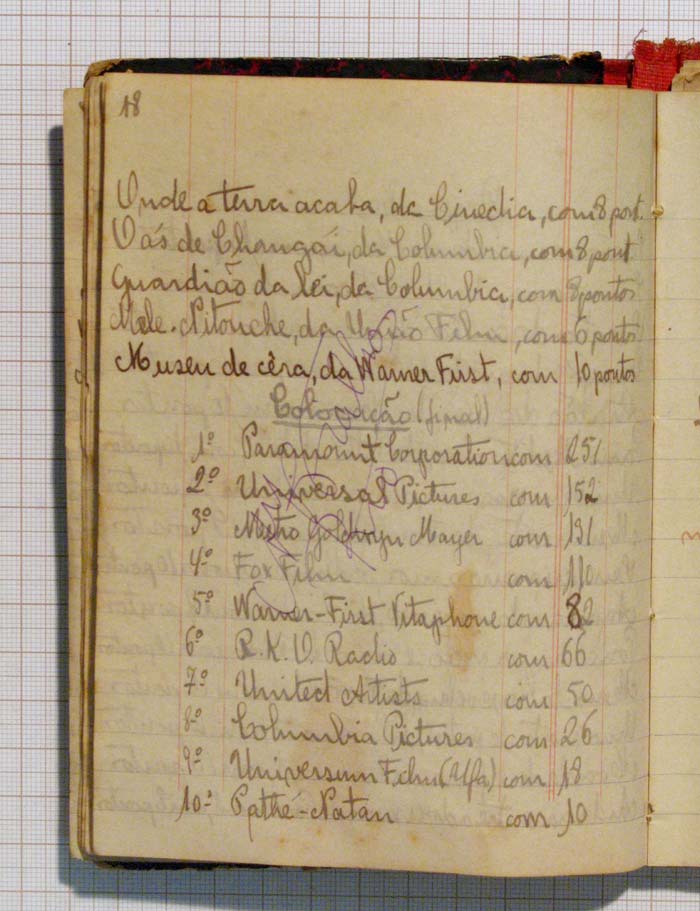 18
Onde a terra acaba, da Cinedia, com 8 pont.
O ás de Changai, da Columbia, com 8 pont.
Guardião da lei, da Columbia, com 8 pontos
Mele. Nitouche, da União Film, com 6 pontos
Museu de cêra, da Warner First, com 10 pontos
Colocação (final)
1º Paramount Corporation com 251
2º Universal Pictures com 152
3º Metro Goldwyn Mayer com 131
4º Fox Film com 110
5º Warner-First Vitaphone com 82
6º R.K.O. Radio com 66
7º United Artists com 50
8º Columbia Pictures com 26
9º Universum Film (Ufa) com 18
10º Pathé-Natan com 10